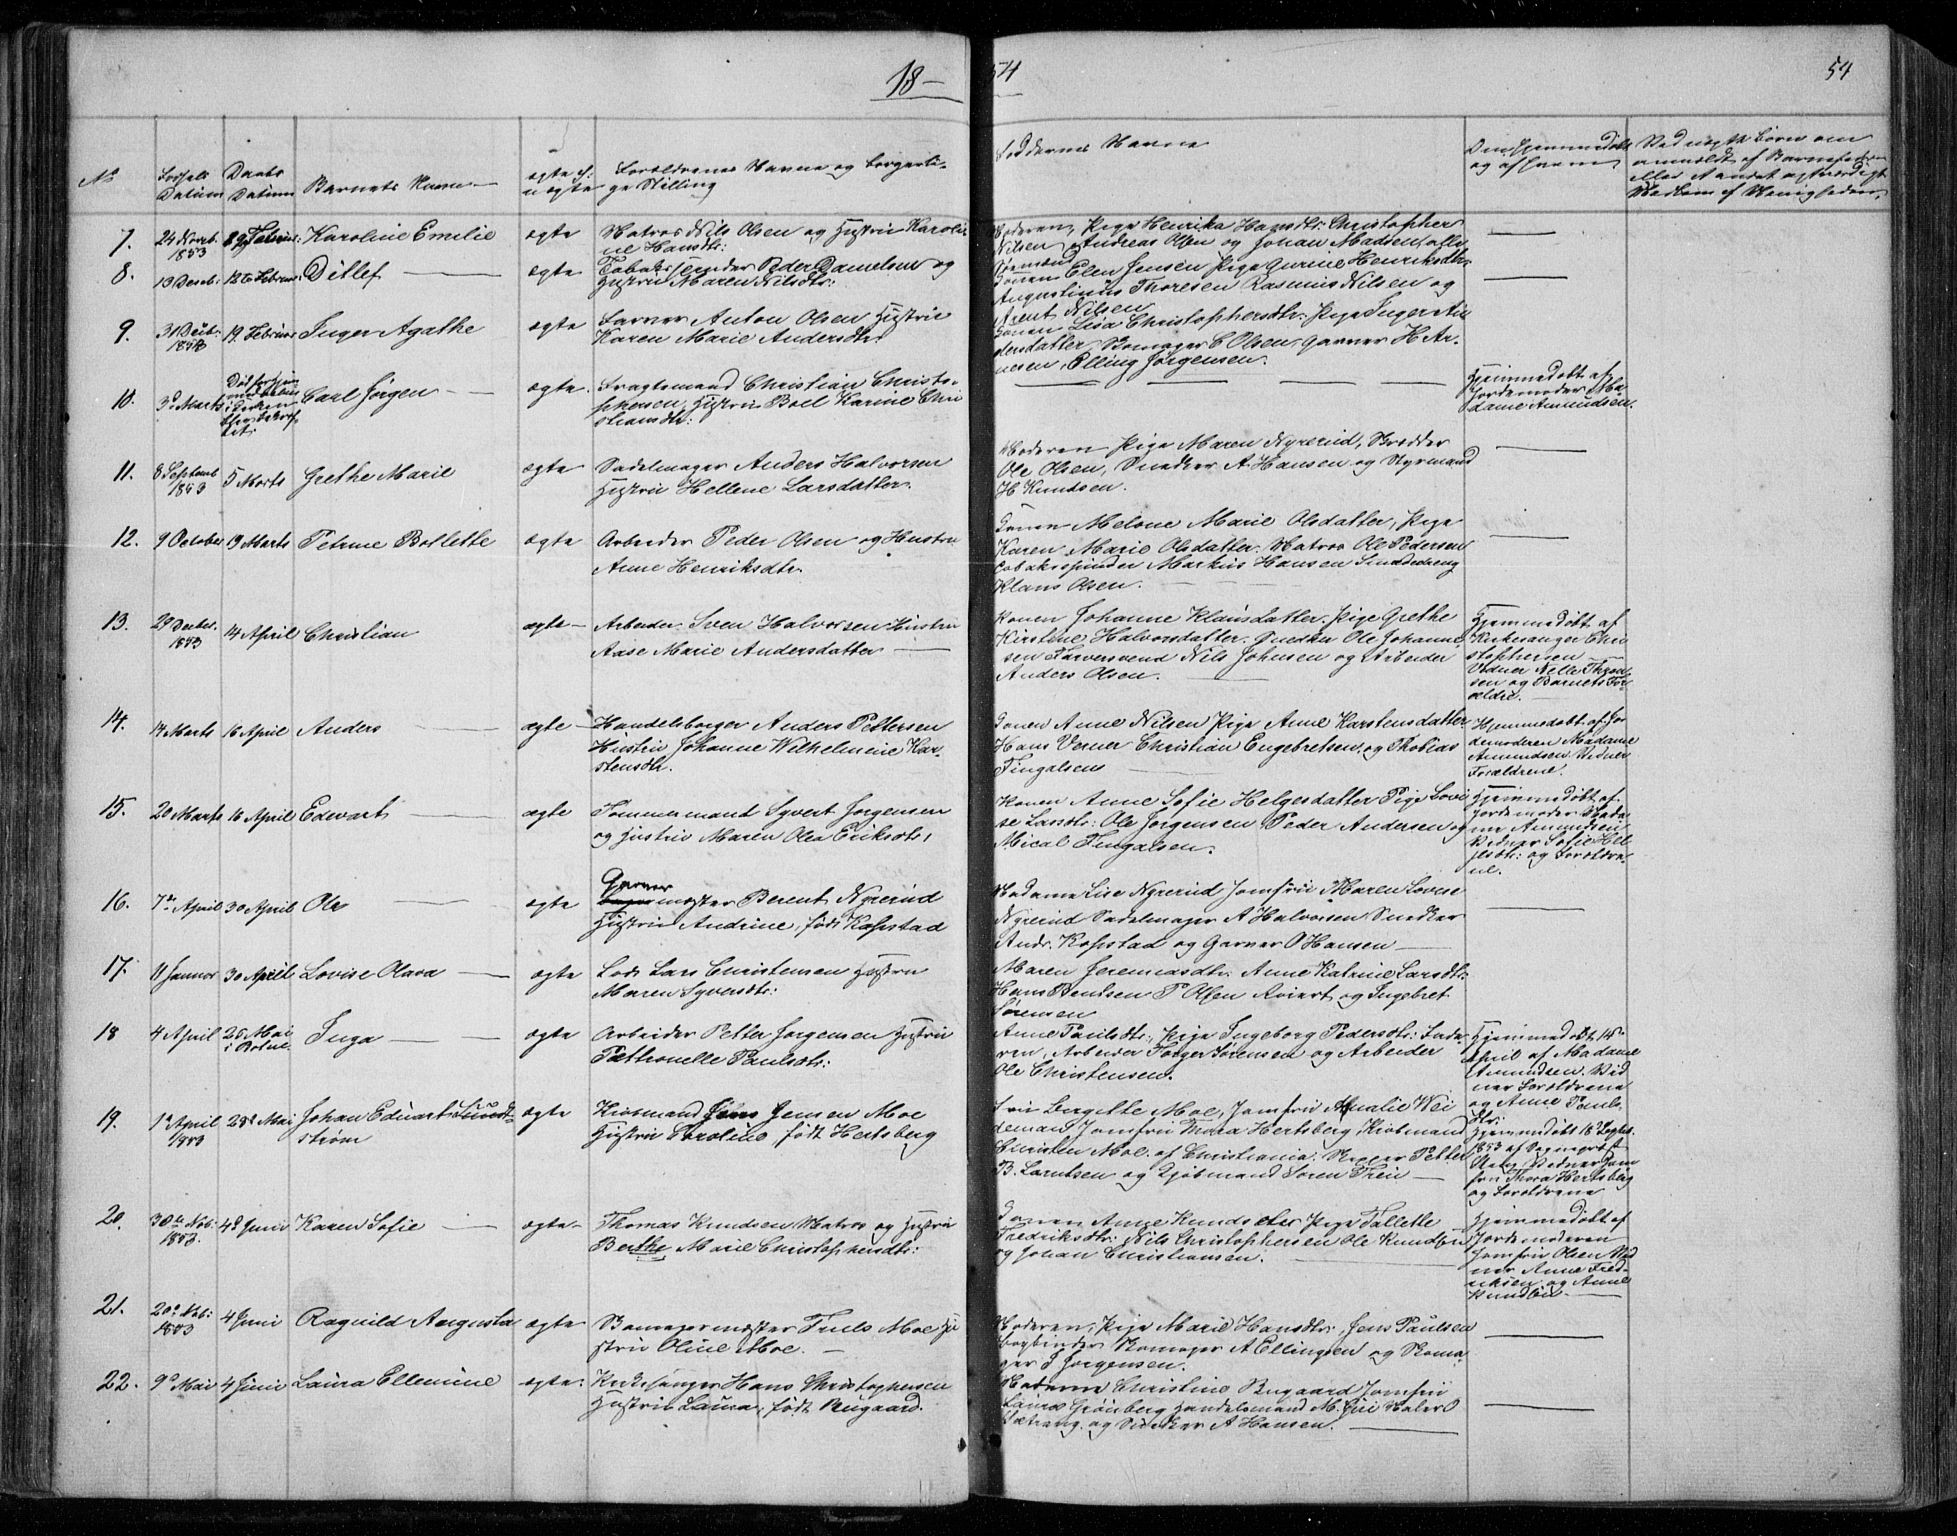 18-54
54
No
Fødsels Datum
Daabs Datum
Barnets Navn
ægte el: uægte
Forældrenes Navne og borgerlige Stilling
Faddernes Navne
Om hjemmedøbt og af hvem
7.
24 Novb. 1853
Februar
Karoline Emilie
ægte
Matros Nils Olsen og Hustrue Karoline Hansdtr:
Moderen, Pige Henrika Hansdtr: Christopher
Nilsen, Andreas Olsen og Johan Madsen alle
Sømænd
8.
13 Deceb:
12te Februar
Ditlef
ægte
Tobaksspinder Peder Danielsen og
Hustrue Maren Nilsdtr:
Konen Elen Jensen Pige Gurine Henriksdtr:
Augustinus Thoresen Rasmus Nilsen og
Arent Nilsen
9.
31 Decb: 1853
19 Februar
Inger Agathe
ægte
Garver Anton Olsen Hustrue
Karen Marie Andersdtr:
Konen Lisa Christophersdtr: Pige Inger An
dersdatter, Skomager E Olsen, Garver H Ar-
nesen, Elling Jørgensen.
10.
3d Marts
Carl Jørgen
ægte
Fragtemand Christian Christo-
phersen, Hustrue Boel Karine Chri
stiansdtr:
Hjemmedøbt af
Jordemoder Ma-
dame Amundsen.
11.
8 Septemb 1853
5 Marts
Grethe Marie
ægte
Sadelmager Anders Halvorsen
Hustrue Hellene Larsdatter.
Moderen Pige Maren Nyrerud, Brødder
Ole Olsen, Snedker A Hansen og Styrmand
H Knudsen.
12.
9 October
19 Marts
Petrine Bollette
ægte
Arbeider Peder Olsen og Hustrue
Anne Henriksdtr.
Konen Melone Marie Olsdatter, Pige
Karen Marie Olsdatter. Matros Ole Pedersen
Tobaksspinder Markus Hansen
Klaus Olsen.
13.
29 Decbr. 1853
14 April
Christian
ægte
Arbeider Sven Halvorsen Hustrue
Aase Marie Andersdatter
Konen Johanne Klausdatter. Pige Grethe
Kirstine Halvorsdatter. Snedker Ole Johanne-
sen Farversvend Nils Johnsen og Arbeider
Anders Olsen.
Hjemmedøbt af
Kirkesanger Chri
stophersen
Vidner Nelle
sen og Barnets For-
ældre.
14.
14 Marts
16 April
Anders
ægte
Handelsborger Anders Pettersen
Hustrue Johanne Wilhelmine Kar-
stensdtr.
Konen Anne Nilsen Pige Anne Karstensdatter
Hans Verner Christian Engebretsen, og Thobias
Fingalsen
Hjemmedøbt af Jor
demoderen Madame
Amundsen. Vidner
Forældrene.
15.
20 Marts
16 April
Edevart
ægte
Tømmermand Syvert Jørgensen
og Hustrue Maren Olea Eriksdtr,
Konen Anne Sofie Helgesdatter Pige Lovi
se Larsdtr: Ole Jørgensen Peder Andersen og
Mical Fingalsen.
Hjemmedøbt af
Jordemoder Mada-
me Amundsen
Vidner Sofie Hel
gesdtr: og Forældre-
ne.
16.
7de April
30 April
Ole
ægte
Garver
mester Berent Nyrerud
Hustrue Andrine, født Kopstad
Madame Lise Nyrerud Jomfrue Maren Lovise
Nyrerud Sadelmager A Halvorsen Snedker
Andr. Kopstad og Garver O Hansen
17.
11 Januar
30 April
Lovise Olava
ægte
Lods Lars Christensen Hustrue
Maren Syversdtr:
Maren Jeremiasdtr. Anne Katrine Larsdtr:
Hans Bentsen P Olsen og Ingebret
Sørensen
18
4 April
25 Mai
Inga
ægte
Arbeider Petter Jørgensen Hustrue
Pettronelle Paulsdtr:
Anne Paulsdtr; Pige Ingeborg Pedersdtr:
Arbeider Torger Sørensen og Arbeider
Ole Christensen.
Hjemmedøbt 14de
April af Madame
Amundsen. Vid
ner Forældrene
og Anne Pauls
dtr.
19.
1ste April 1853
25de Mai
Johan Eduart Sundt-
strøm
ægte
Kiøbmand Jens Jensen Moe
Hustrue Caroline, født Hertsberg
Fru Bergitte Moe, Jomfru Amalie Wei
deman Jomfru Thora Hertsberg, Kiøbmand
Christen Moe, af Christiania. Petter
B. Larntsen og Kjøbmand Søren
Hjemmedøbt 18 Septbr.
1853 af Sognepræst
Vidner Jom
fru Thora Hertsberg
og Forældrene
20.
30te Nob: 1853
4de Juni
Karen Sofie
ægte
Thomas Knudsen Matros og Hustrue
Berthe Marie Christophersdtr:
Konen Anne Knudsdtr Pige Tallette
Fredriksdtr: Nils Christophersen Ole Knudsen
og Johan Christiansen.
Hjemmedøbt af
Jordemoderen
Jomfru Olsen Vid
ner Anne Fred-
riksen og Anne
Knudsen
21.
20de Nob: 1853
4 Juni
Ragnild Augusta
ægte
mester Truls Moe Hu
strue Oline Moe.
Moderen, Pige Marie Hansdtr; Jens Paulsen
Bogbinder Skomager A Ellingsen og Skoma-
ger J Jørgensen.
22.
9de Mai
4 Juni
Laura Ellemine
ægte
Kirkesanger Hans Christophersen
Hustrue Laura, født Bugaard.
Madame Christine Bugaard Jomfru
Laura Grønberg Handelsmand M. Maler O
og Snedker A Hansen.